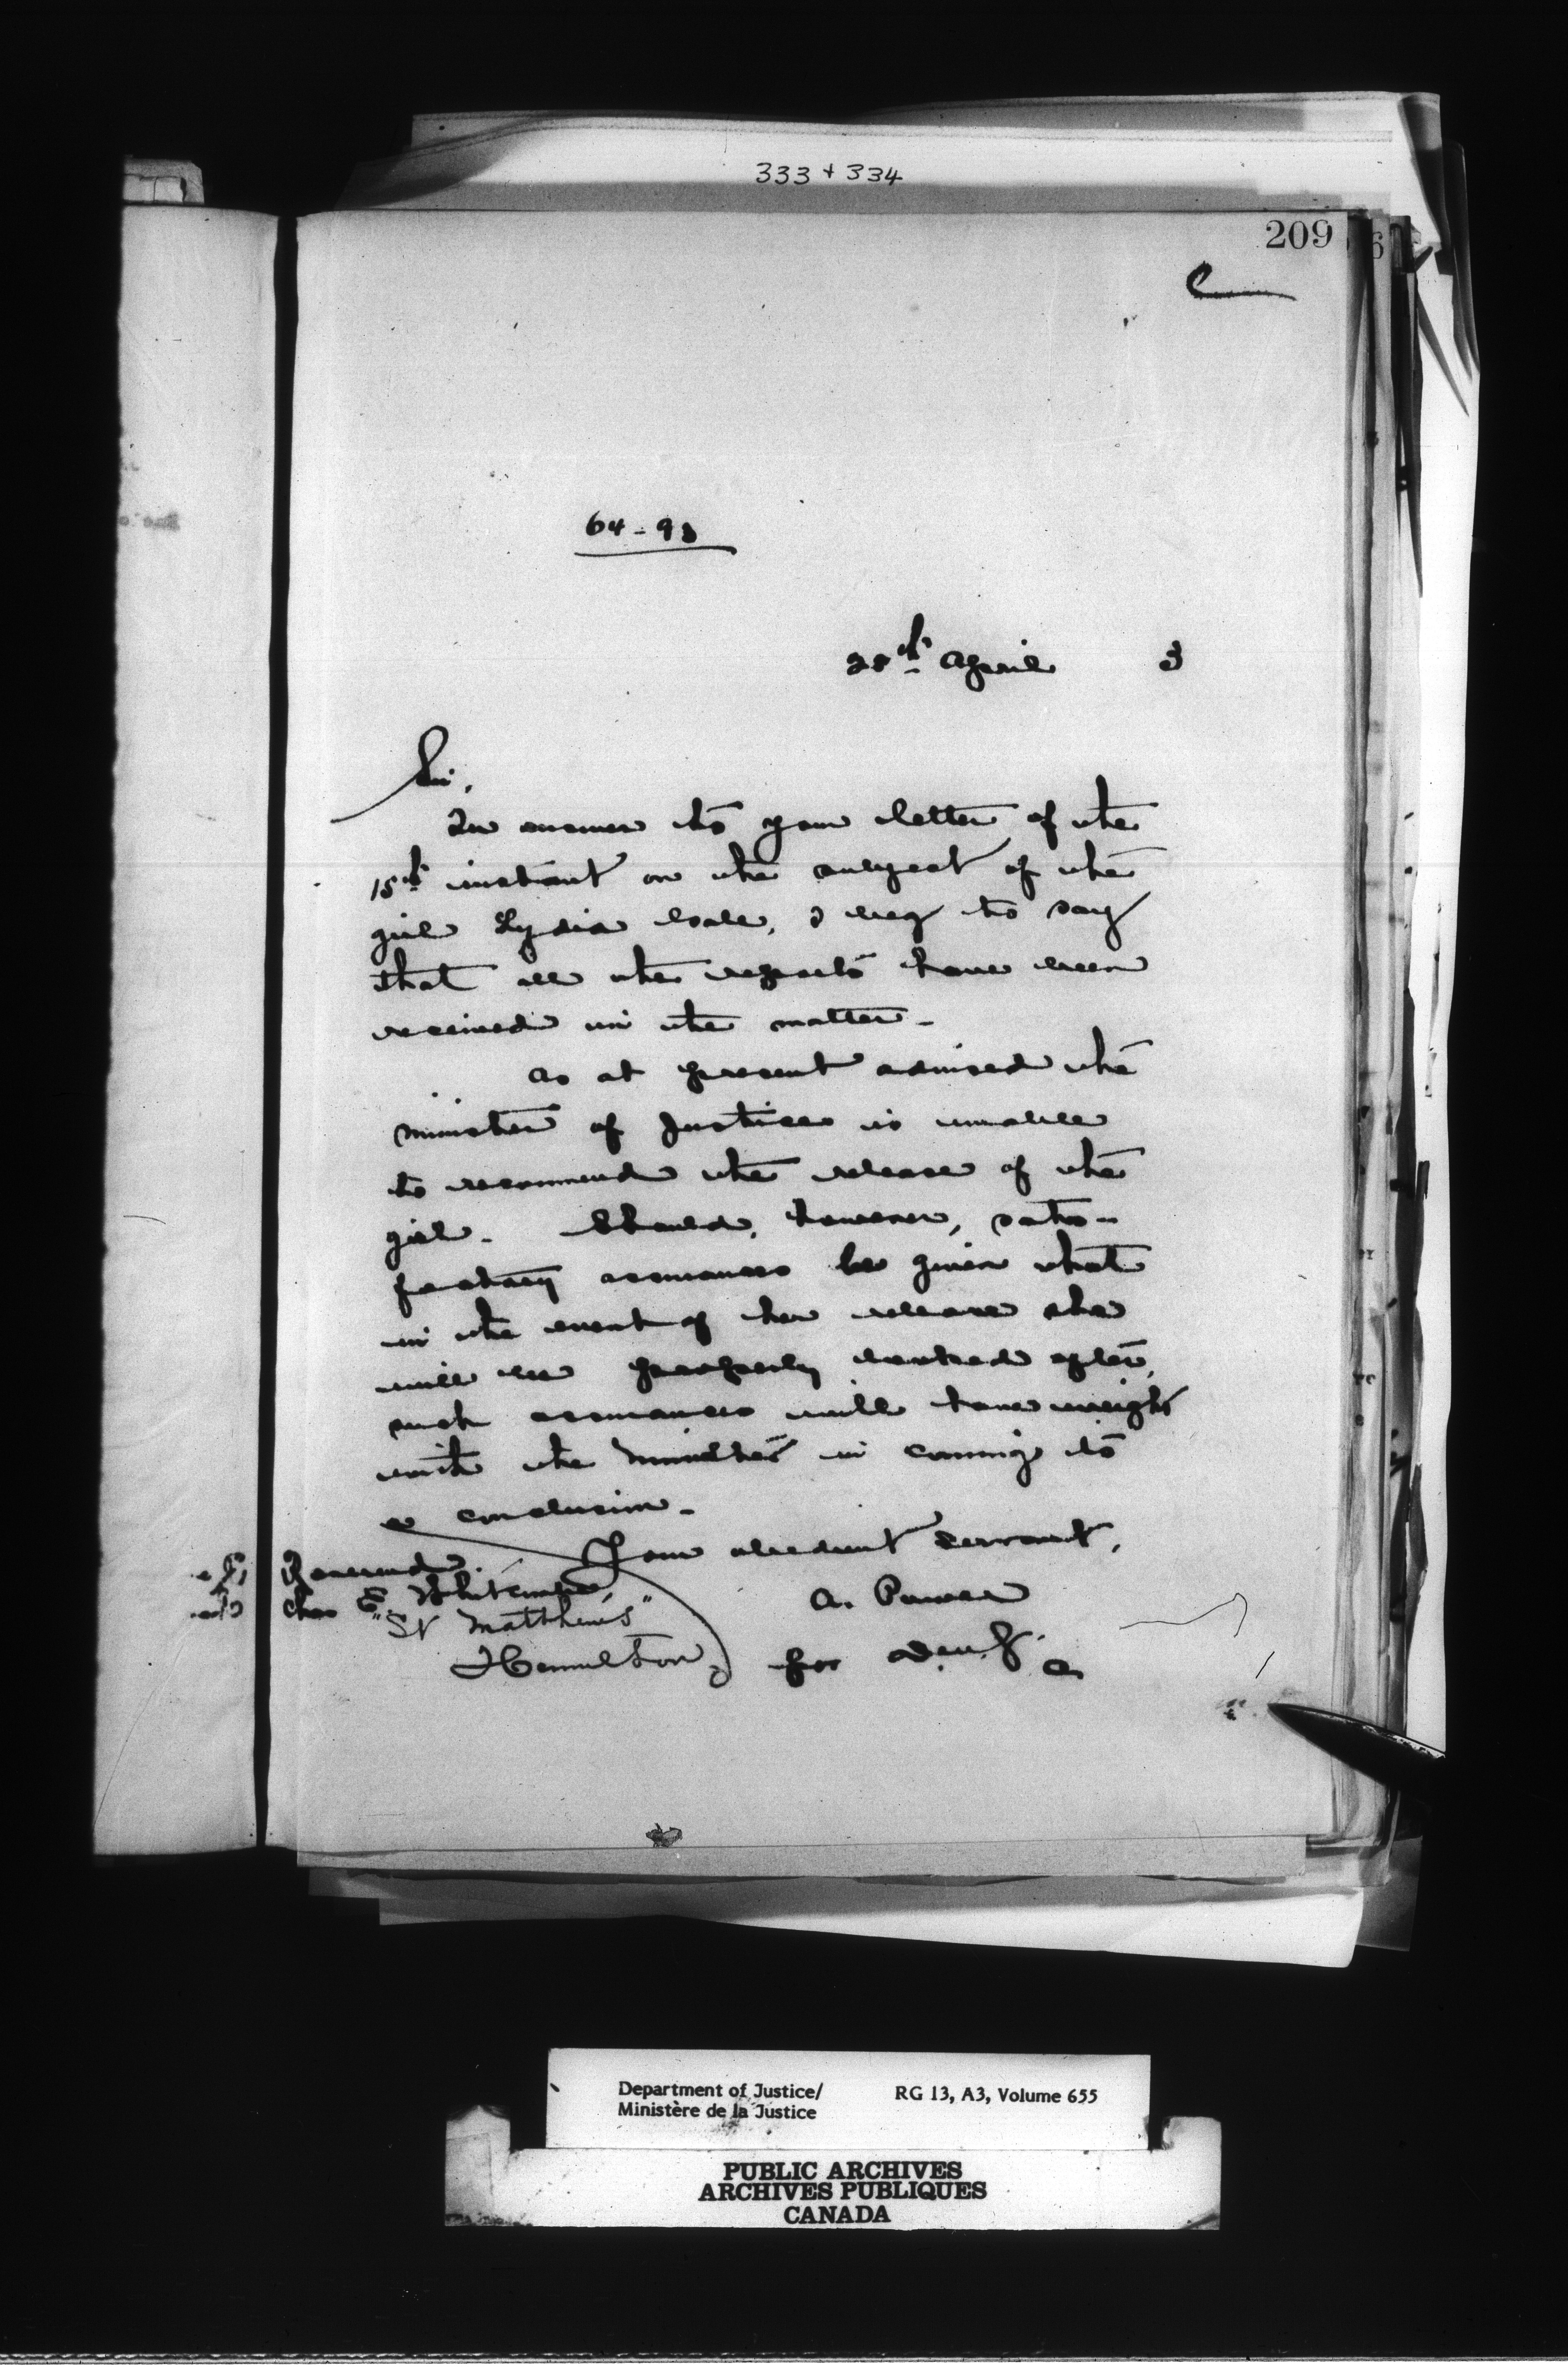 333 + 334
209
64-93
28th April 3
Sir,
In answer to your letter of the
15th instant on the subject of the
girl Lydia, I beg to say
that all the reports have been
received in the matter-
As at present advised the
Minister of Justice is unable
to recommend the release of the
girl. Should, however, satis-
factory assurances be given that
in the event of her release she
will be properly looked after,
such assurances will have weight
with the Minister in coming to
a conclusion-
Your obedient servant,
A. Power
for D.M.J.
Reverend
Chas E. Whitcombe,
"St Matthew's"
Hamilton
Department of Justice/
Ministère de la Justice
RG 13, A3, Volume 655
PUBLIC ARCHIVES
ARCHIVES PUBLIQUES
CANADA